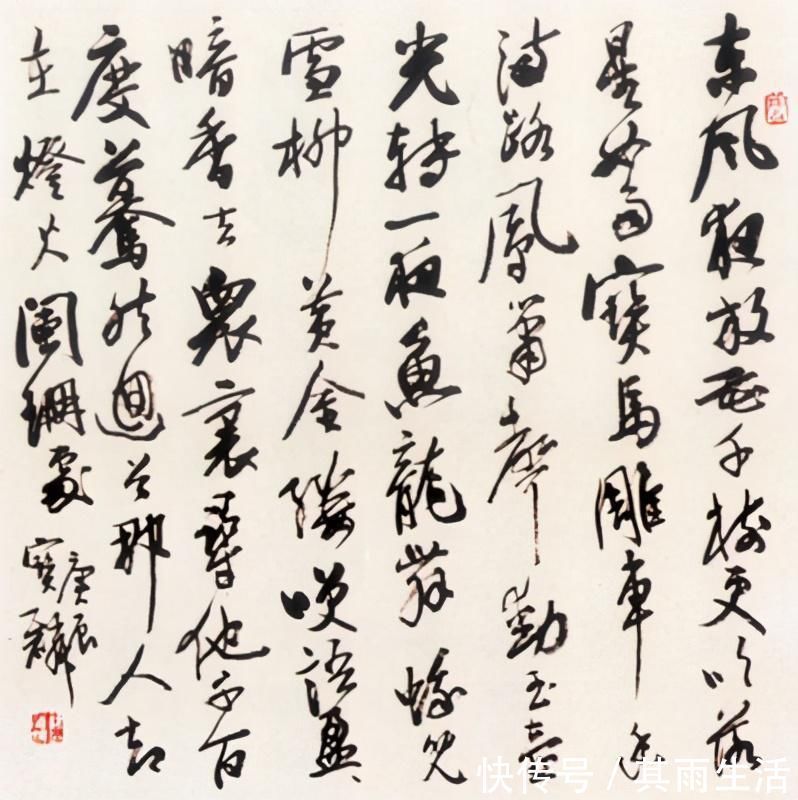 东風夜放花千樹更吹落
星如雨寶馬雕車香
滿路鳳簫聲動玉壺
光轉一夜魚龍舞蛾兒
雪柳黄金縷咲語盈
暗香去衆裏尋他千百
度驀然迴首那人却
在燈火闌珊處
庚辰
寶麟
快传号 / 其雨生活